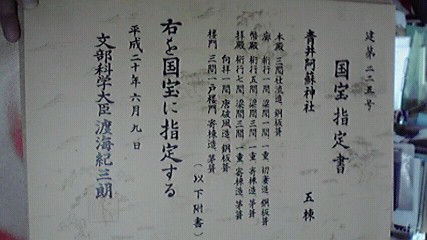 建第二二五号
国宝指定書
青井阿蘇神社 五棟
本殿 三間社流造、銅板葺
廊 桁行一間、梁間一間、一重、切妻造、銅板葺
幣殿 桁行五間、梁間三間、一重、寄棟造、茅葺
拝殿 桁行七間、梁間三間、一重、寄棟造、茅葺
向拝一間、唐破風造、銅板葺
楼門 三間一戸楼門、寄棟造、茅葺
(以下附書)
右を国宝に指定する
平成二十年六月九日
文部科学大臣 渡海紀三朗